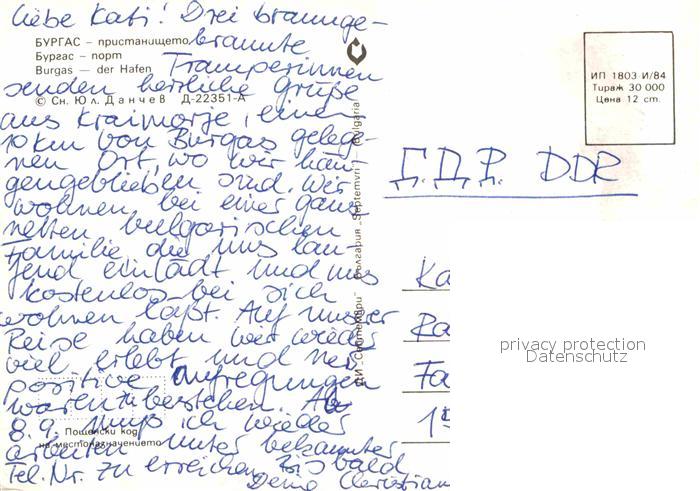 Liebe Kati! Drei braunge-
brannte
БУРГАС – пристанището
Бургас – порт
Burgas — der Hafen
Tramperinnen
senden herrliche Grüße
© Сн. Юл. Данчев Д-22351-А
aus Kraimorje, einen
10 km von Burgas geleg-
nen Ort, wo wir hän-
gengeblieben sind. Wir
wohnen bei einer ganz
netten bulgarischen
Familie die uns lau-
fend einlädt und uns
kostenlos bei sich
wohnen läßt. Auf unserer
Reise haben wir wieder
viel erlebt und nur
positive Aufregungen
waren zu bestehen. Ab
8.9. muß ich wieder
Пощенски код
на местоназначението
arbeiten unter bekannter
Tel.Nr. zu erreichen. Bis bald
Deine Christian
ДИ „Септември" България „Septemvri" Bulgaria
ИП 1803 И/84
Тираж 30 000
Цена 12 ст.
Г.Д.Р. DDR
Ka
Ra
Fa
1
privacy protection
Datenschutz